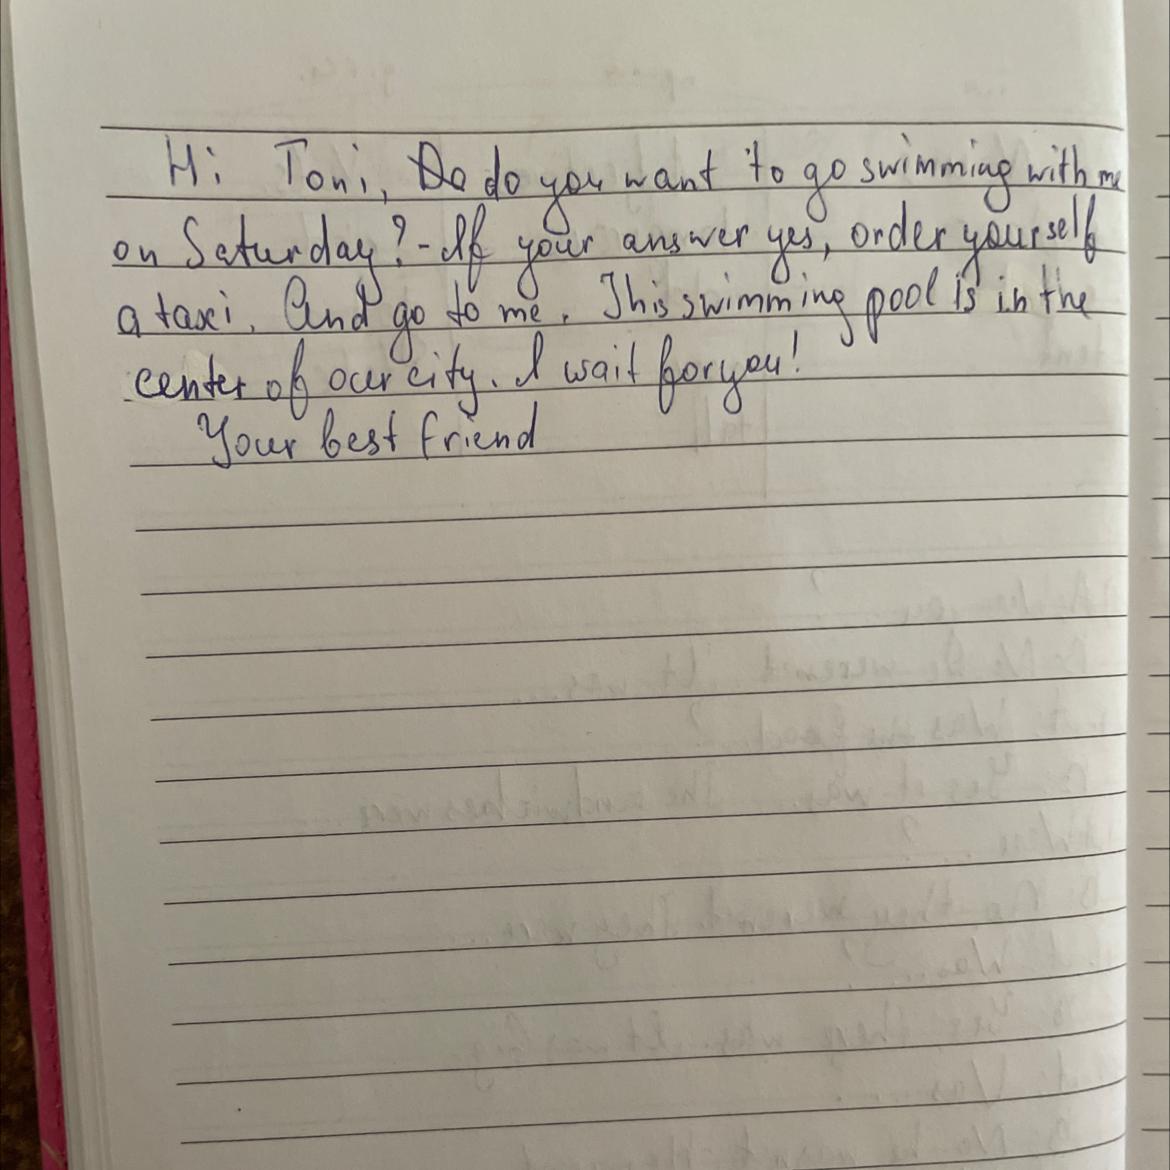 Hi Toni, do you want to go swimming with me
on Saturday? - If your answer yes, order yourself
a taxi. And go to me. This swimming pool is in the
center of our city. I wait for you!
Your best friend